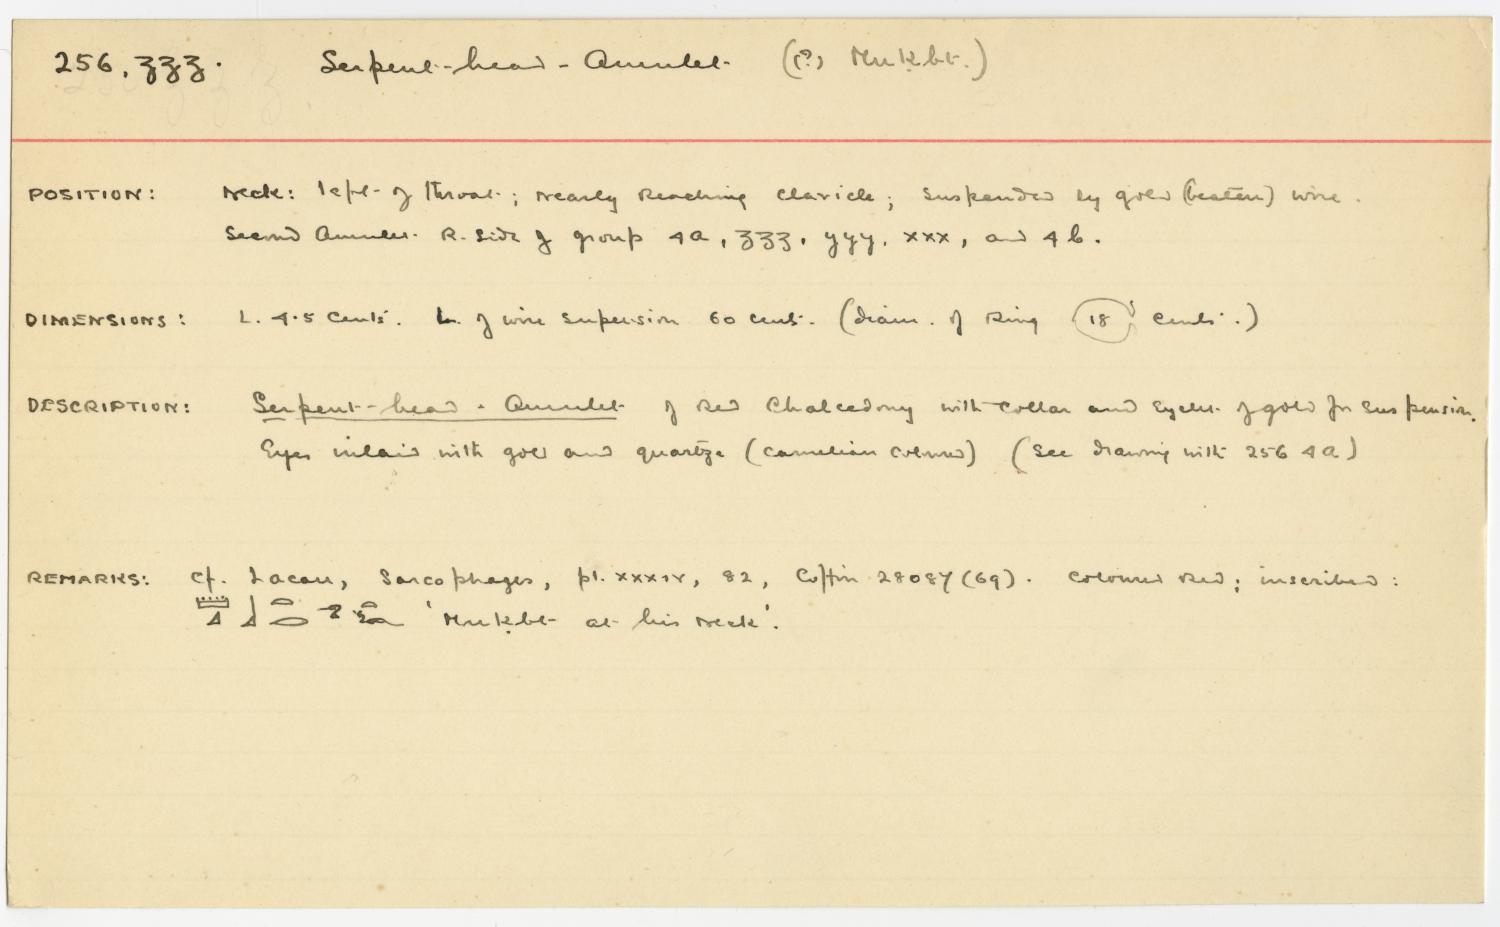 256, zzz. Serpent-head-Amulet (?, Mnḳbt.)
POSITION: Neck: left of throat; nearly reaching clavicle; suspended by gold (beaten) wire.
Second Amulet R. side of group 4a, zzz, yyy, xxx, and 4b.
DIMENSIONS: L. 4.5 cents. L. of wire supension 60 cents. (diam. of ring 18 cents.)
DESCRIPTION: Serpent-head-Amulet of red Chalcedony with collar and eyelet of gold for suspension.
Eyes inlaid with gold and quartze (carnelian coloured) (see drawing with 256 4a)
REMARKS: Cf. Lacau, Sarcophages, pl. xxxiv, 82, Coffin 28087 (69). Coloured red; inscribed:
'Mnḳbt at his neck'.